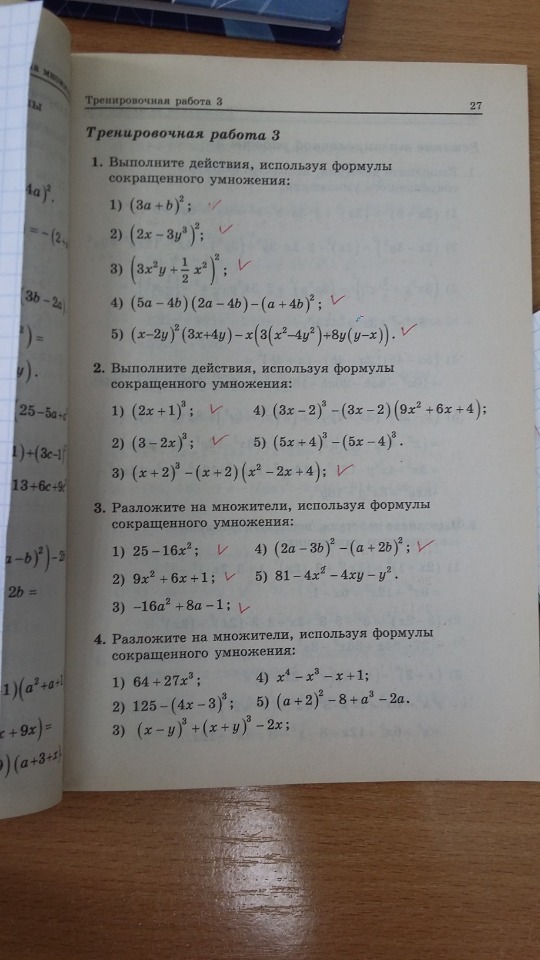 Тренировочная работа 3 27
Тренировочная работа 3
1. Выполните действия, используя формулы
сокращенного умножения:
1) (3a + b)²;
2) (2x − 3y³)²;
3) (3x²y + 1/2 x²)²;
4) (5a − 4b)(2a − 4b) − (a + 4b)²;
5) (x − 2y)²(3x + 4y) − x(3(x² − 4y²) + 8y(y − x)).
2. Выполните действия, используя формулы
сокращенного умножения:
1) (2x + 1)³; 4) (3x − 2)³ − (3x − 2)(9x² + 6x + 4);
2) (3 − 2x)³; 5) (5x + 4)³ − (5x − 4)³.
3) (x + 2)³ − (x + 2)(x² − 2x + 4);
3. Разложите на множители, используя формулы
сокращенного умножения:
1) 25 − 16x²; 4) (2a − 3b)² − (a + 2b)²;
2) 9x² + 6x + 1; 5) 81 − 4x² − 4xy − y².
3) −16a² + 8a − 1;
4. Разложите на множители, используя формулы
сокращенного умножения:
1) 64 + 27x³; 4) x⁴ − x³ − x + 1;
2) 125 − (4x − 3)³; 5) (a + 2)² − 8 + a³ − 2a.
3) (x − y)³ + (x + y)³ − 2x;
4a)².
(3b − 2a)
(25 − 5a + a
1) + (3c − 1)²
13 + 6c + 9c
a − b)²) − 2
2b =
1)(a² + a + 1
x + 9x) =
)(a + 3 + x)